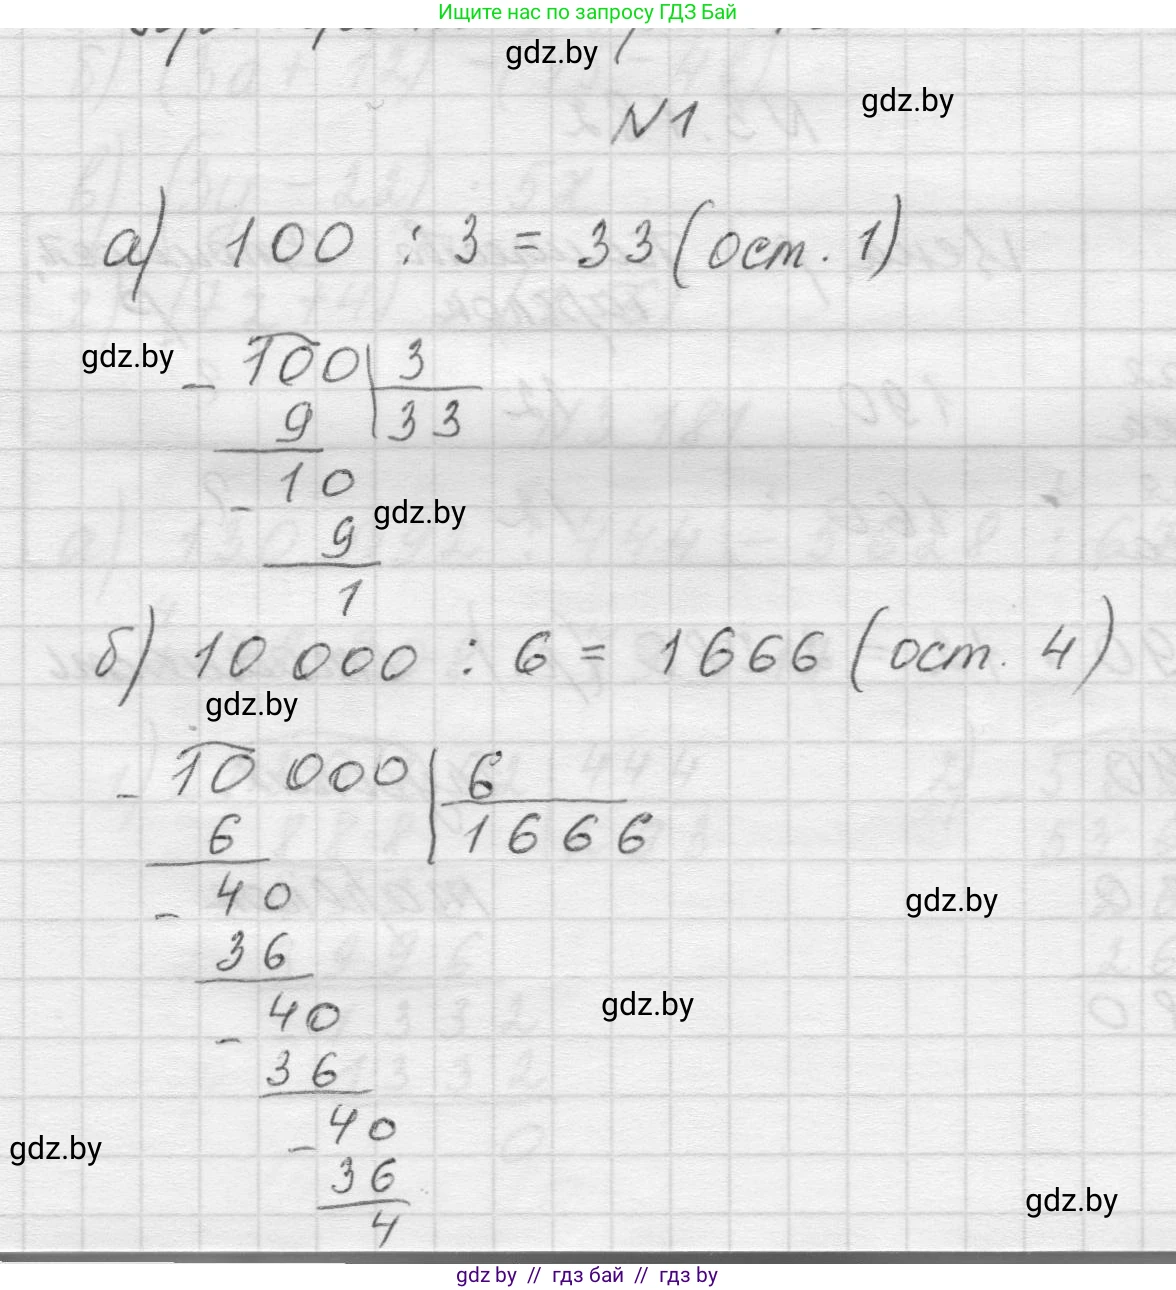 Ищите нас по запросу ГДЗ Бай
gdz.by
gdz.by
N1
а) 100 : 3 = 33 (ост. 1)
gdz.by
- 100 | 3
9 | 33
- 10
gdz.by
9
1
б) 10 000 : 6 = 1666 (ост. 4)
gdz.by
- 10 000 | 6
6 | 1666
- 40
gdz.by
36
- 40
gdz.by
36
- 40
gdz.by
36
gdz.by
4
gdz.by // гдз бай // гдз by